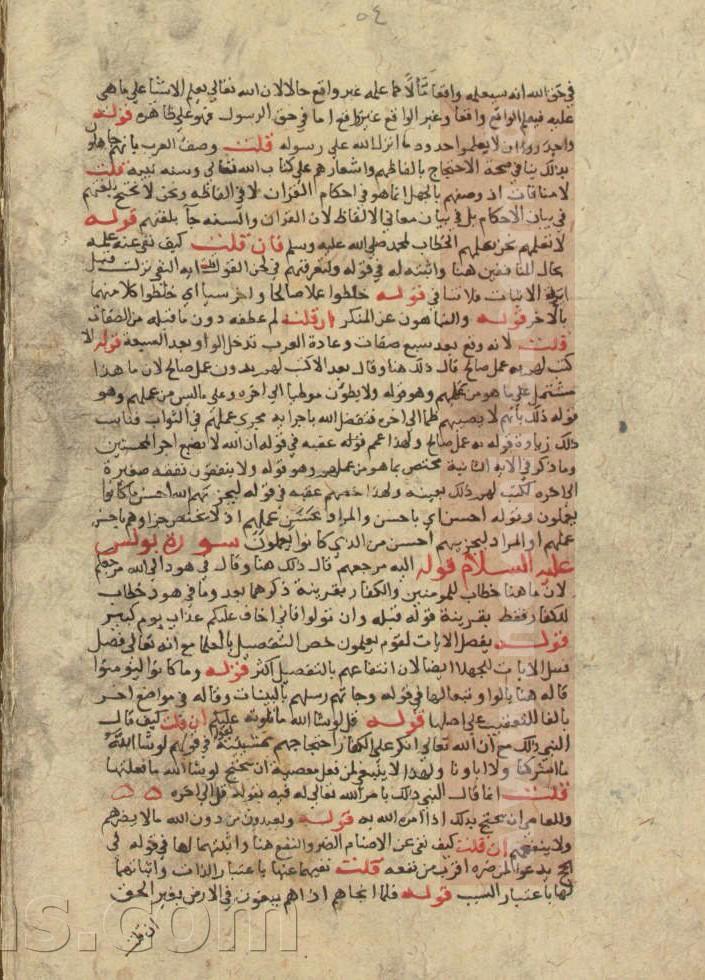 ٥٤
في حق الله انه سيعلمه واقعا مآلا كما علمه غير واقع حالا لان الله تعالى يعلم الاشيا على ما هي
عليه فيعلم الواقع واقعا وغير الواقع غير واقع اما في حق الرسول فهو على ظاهره قوله
واجدر ان لا يعلموا حدود ما انزل الله على رسوله قلت وصف العرب بانهم جاهلون
بذلك ينافي صحة الاحتجاج بالفاظهم واشعارهم على كتاب الله تعالى وسنة نبيه قلت
لا منافاة اذ وصفهم بالجهل انما هو في احكام القران لا في الفاظه ونحن لا نحتج بلغتهم
في بيان الاحكام بل في بيان معاني الالفاظ لان القران والسنه جآ بلغتهم قوله
لا تعلمهم نحن نعلمهم الخطاب لمحمد صلى الله عليه وسلم فان قلت كيف نفى عنه علمه
بحال المنافقين هنا واثبته له في قوله ولتعرفنهم في لحن القول قلت اية النفي نزلت قبل
اية الاثبات فلا تنافي قوله خلطوا عملا صالحا واخر سيا اي خلطوا كلا منهما
بالاخر قوله والناهون عن المنكر ان قلت لم عطفه دون ما قبله من الصفات
قلت لانه وقع بعد سبع صفات وعادة العرب تدخل الواو بعد السبعة قوله الا
كتب لهم به عمل صالح قال ذلك هنا وقال بعد الا كتب لهم بدون عمل صالح لان ما هنا
مشتمل على ما هو من عملهم وهو قوله ولا يطؤن موطيا الى اخره وعلى ما ليس من عملهم وهو
قوله ذلك بانهم لا يصيبهم ظما الى اخره فتفضل الله باجرا به مجرى عملهم في الثواب فناسب
ذلك زيادة قوله به عمل صالح ولهذا عمم قوله عقبه في قوله ان الله لا يضيع اجر المحسنين
وما ذكر في الاية الثانية مختص بما هو من عملهم وهو قوله ولا ينفقون نفقه صغيرة
الى اخره لكتب لهم ذلك بعينه ولهذا خصهم عقبه في قوله ليجزيهم الله احسن ما كانوا
يعملون وقوله احسن اي باحسن والمراد بحسن عملهم اذ لا يختص جزاوهم باحسن
عملهم او المراد ليجزيهم احسن من الذي كانوا يعملون سورة يونس
عليه السلام قوله اليه مرجعكم قال ذلك هنا وقال في هود الى الله مرجعكم
لان ما هنا خطاب للمومنين والكفار بقرينة ذكرهما بعد وما في هود خطاب
للكفار فقط بقرينة قوله قبله وان تولوا فاني اخاف عليكم عذاب يوم كبير
قوله يفصل الايات لقوم يعلمون خص التفصيل بالعلما مع انه تعالى فصل
الايات للجهلا ايضا لان انتفاعهم بالتفصيل اكثر قوله وما كانوا ليومنوا
قاله هنا بالواو تبعا لها في قوله وجاتهم رسلهم بالبينات وقاله في مواضع اخر
بالفا للتعقيب على اصلها قوله قل لو شا الله ما تلوته عليكم ان قلت كيف قال
النبي ذلك مع ان الله تعالى انكر على الكفار احتجاجهم بمشيئته في قولهم لو شا الله
ما اشركنا ولا اباونا ولهذا لا ينبغي لمن فعل معصية ان يحتج لو شا الله ما فعلتها
قلت انما قال النبي ذلك بامر الله تعالى له فيه بقوله قل الى اخره
وللعامر ان يحتج بذلك اذا امره الله به قوله ويعبدون من دون الله ما لا يضرهم
ولا ينفعهم ان قلت كيف نفى عن الاصنام الضر والنفع هنا واثبتهما لها في قوله في
الحج يدعو لمن ضره اقرب من نفعه قلت نفيهما عنها باعتبار الذات واثباتهما
لها باعتبار السبب قوله فلما انجاهم اذا هم يبغون في الارض بغير الحق
ان قلت
us.com